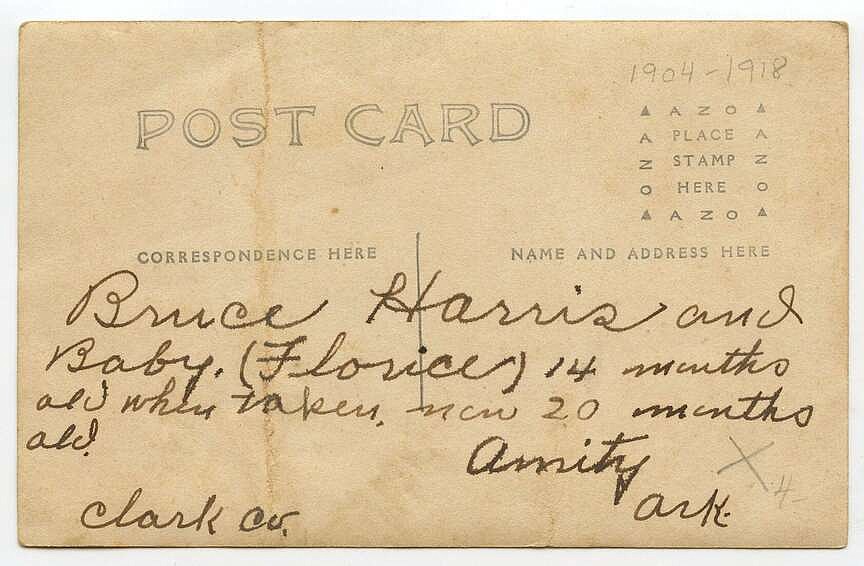 1904-1918
POST CARD
▲ A Z O ▲
A PLACE A
N STAMP Z
O HERE O
▲ A Z O ▲
CORRESPONDENCE HERE
NAME AND ADDRESS HERE
Bruce Harris and
Baby. (Florice) 14 months
old when taken, now 20 months
old.
Amity
Ark.
Clark Co.
X 4-